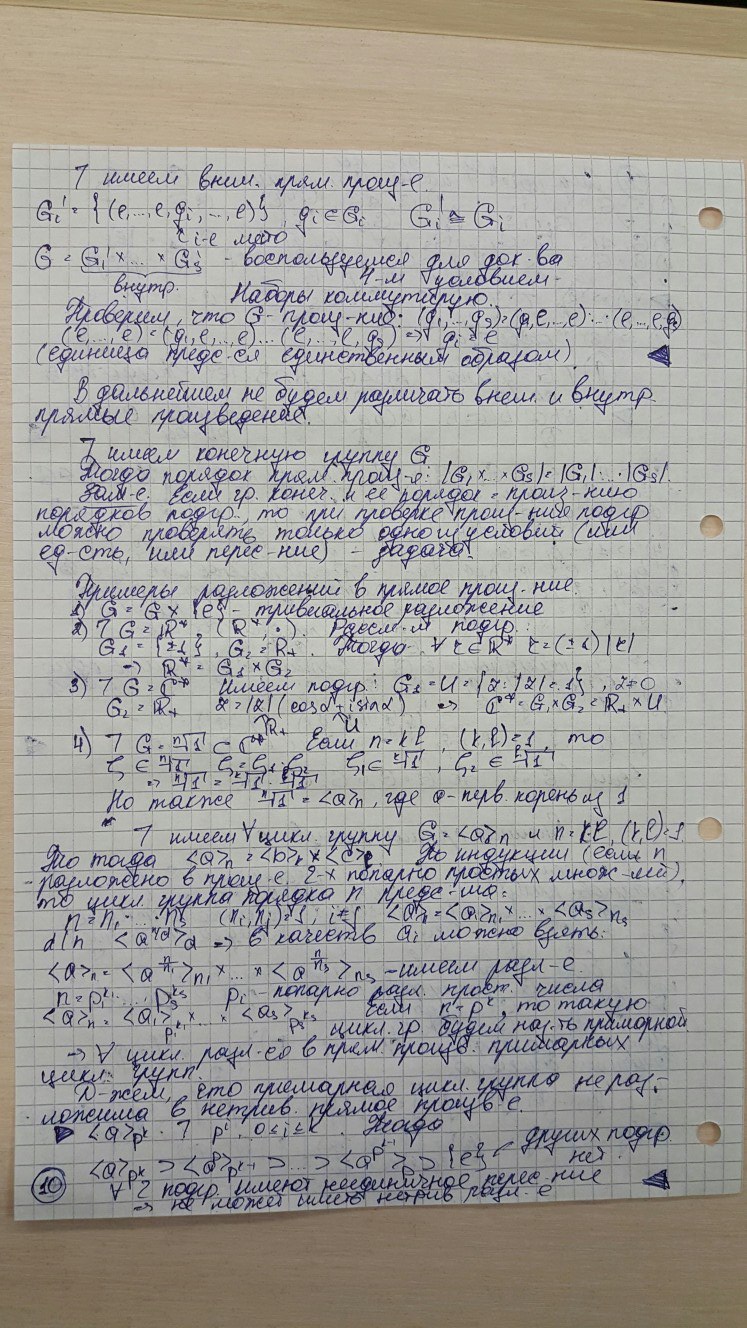 7 имеем внеш. прям. произ-е.
Gi' = {(e,...,e, gi,...,e)}, gi∈Gi   Gi' ≅ Gi
i-е место
G = G1' × ... × Gs' - воспользуемся для док-ва
внутр.   4-м условием.
Наборы коммутирую.
Проверим, что G - произ-ние: (g1,...,gs) = (g1,e,...,e)·...·(e,...,e,gs)
(e,...,e) = (g1,e,...,e)...(e,...,e,gs) ⇒ gi = e
(единица предс-ся единственным образом)
В дальнейшем не будем различать внеш. и внутр.
прямые произведения.
7 имеем конечную группу G
Тогда порядок прям. произ-я: |G1×...×Gs| = |G1|·...·|Gs|.
Зам-е. Если гр. конеч. и её порядок = произ-нию
порядков подгр., то при проверке произ-ния подгр
можно проверять только одно из условий (или
ед-сть, или перес-ние) - задача!
Примеры разложений в прямое произ-ние.
1) G = G × {e} - тривиальное разложение
2) 7 G = R*, (R*, ·). Рассм-м подгр.:
G1 = {±1}, G2 = R+. Тогда ∀ r∈R* r = (±1)|r|
⇒ R* = G1×G2
3) 7 G = C*   Имеем подгр.: G1 = U = {z: |z| = 1}, z≠0
G2 = R+   z = |z|(cosα + i sinα) ⇒ C* = G1×G2 = R+ × U
R+   U
4) 7 G = ⁿ√1 ⊂ C*   Если n = kl, (k,l) = 1, то
ξ ∈ ⁿ√1   ξ = ξ1·ξ2   ξ1 ∈ ᵏ√1, ξ2 ∈ ˡ√1
⇒ ⁿ√1 = ᵏ√1 · ˡ√1
Но также ⁿ√1 = <a>n, где a - перв. корень из 1
7 имеем ∀ цикл. группу G = <a>n и n = k·l, (k,l)=1
То тогда <a>n = <b>k × <c>l. По индукции (если n
разложено в произ-е 2-х попарно простых множ-лей),
то цикл. группа порядка n предс-ма:
n = n1·...·ns   (ni,nj)=1, i≠j   <a>n = <a1>n1 ×...× <as>ns
d|n   <a^{n/d}>d ⇒ в качеств ai можно взять:
<a>n = <a^{n/n1}>n1 ×...× <a^{n/ns}>ns - имеем разл-е.
n = p1^{k1}...ps^{ks}   pi - попарно разл. прост. числа
<a>n = <a1>p1^{k1} ×...× <as>ps^{ks}   Если n = p^k, то такую
цикл. гр. будем наз-ть примарной
⇒ ∀ цикл. разл-ся в прям. произв. примарных
цикл. групп.
Д-жем, что примарная цикл. группа нераз-
ложима в нетрив. прямое произв-е.
<a>p^k. 7 p^i, 0≤i≤k. Тогда
<a>p^k ⊃ <a^p>p^{k-1} ⊃ ... ⊃ <a^{p^{k-1}}>p ⊃ {e} - других подгр.
нет.
∀ 2 подгр. имеют неединичное перес-ние
⇒ не может иметь нетрив. разл-е
10